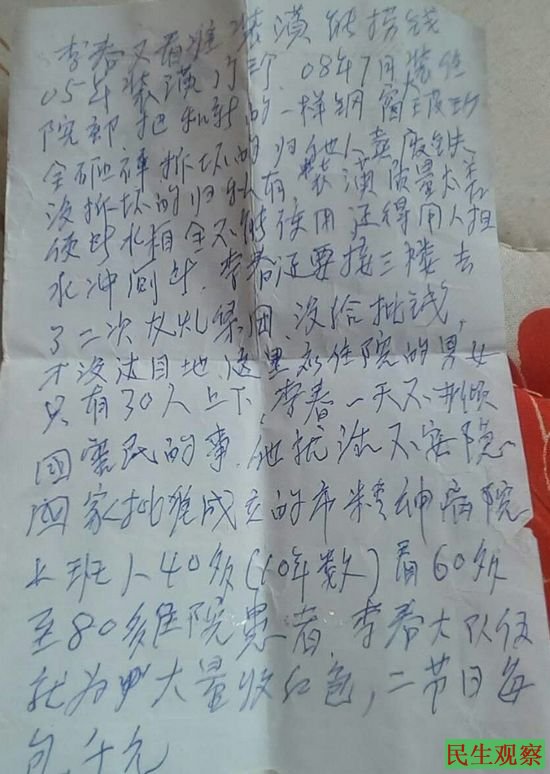 李春又看准装潢能捞钱
05年装潢门诊.08年7月装住
院部.把和新的一样钢窗玻
全砸碎拆坏的归他人卖废铁.
没拆坏的归私有装潢质量太差
使时水相全不能使用还得用人担
水冲厕所.李春还要接三楼去
了二次.没给批钱,
才没达目地.这里才住院的男女
只有30人上下.李春一天不
国害民的事.他就活不安隐
国家批准成立的市精神病院
上班人40多(10年数)看60多
至80多住院患者.李春大队伍
就为大量收红包,二节日每
包千元
民生观察